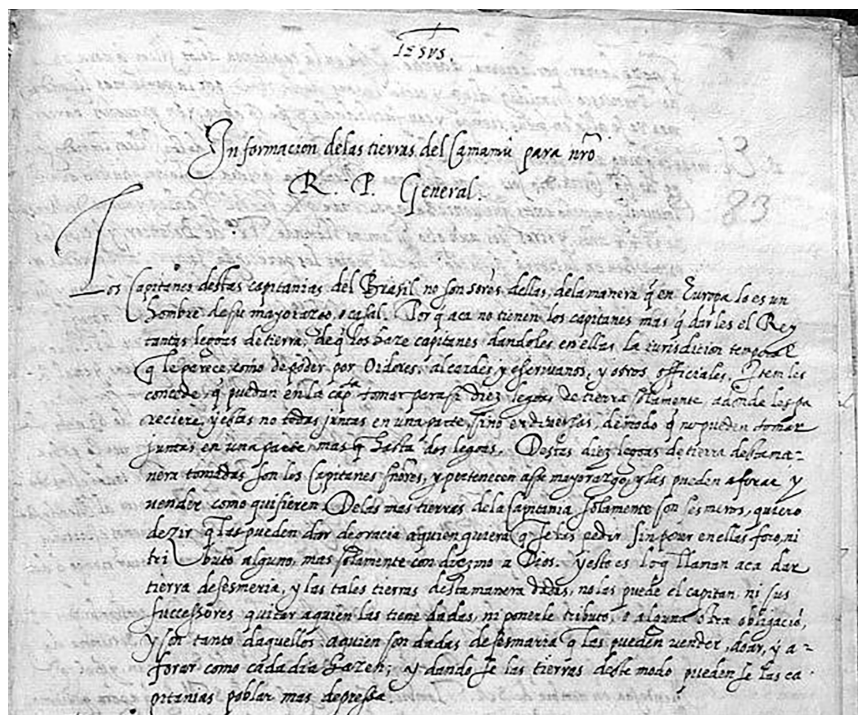 IESVS
Informacion delas tierras del Camamu para nrõ
R. P. General.
Los Capitanes destas capitanias del Brasil no son sores dellas, dela manera q̃ en Europa lo es un
hombre de su mayorazgo, o casal. Por q̃ aca no tienen los capitanes mas q̃ darles el Rey
tantas legoas de tierra, de q̃ los haze capitanes dandoles en ellas la iurisdicion temporal
q̃ le parece, como de poder por Oidores, alcaldes y escriuanos, y otros officiales. Item les
concede, q̃ puedan en la capnia tomar para si diez legoas de tierra solamente, adonde les pa
reciere, y estas no todas juntas en una parte, sino en diuersas, de modo q̃ no pueden tomar
juntas en una parte mas q̃ hasta dos legoas. Destas diez legoas de tierra desta ma-
nera tomadas son los Capitanes sñores, y pertenecen a su mayorazgo, y las pueden aforar y
uender como quisieren. Delas mas tierras dela capitania solamente son quiero
dezir q̃ las pueden dar de gracia a quien quiera q̃ se las pedir sin poner en ellas foro, ni
tributo alguno, mas solamente con diezmo a Dios. y este es lo q̃ llaman aca dar
tierra de sesmeria, y las tales tierras desta manera dadas, no las puede el capitan, ni sus
successores quitar a quien las tiene dadas, ni ponerle tributo, o alguna otra obligació,
y son tanto daquellos aquien son dadas de sesmaria q̃ las pueden uender, doar, y a-
forar como cada dia hazen; y dandose las tierras deste modo puedense las ca-
pitanias poblar mas depressa.
83